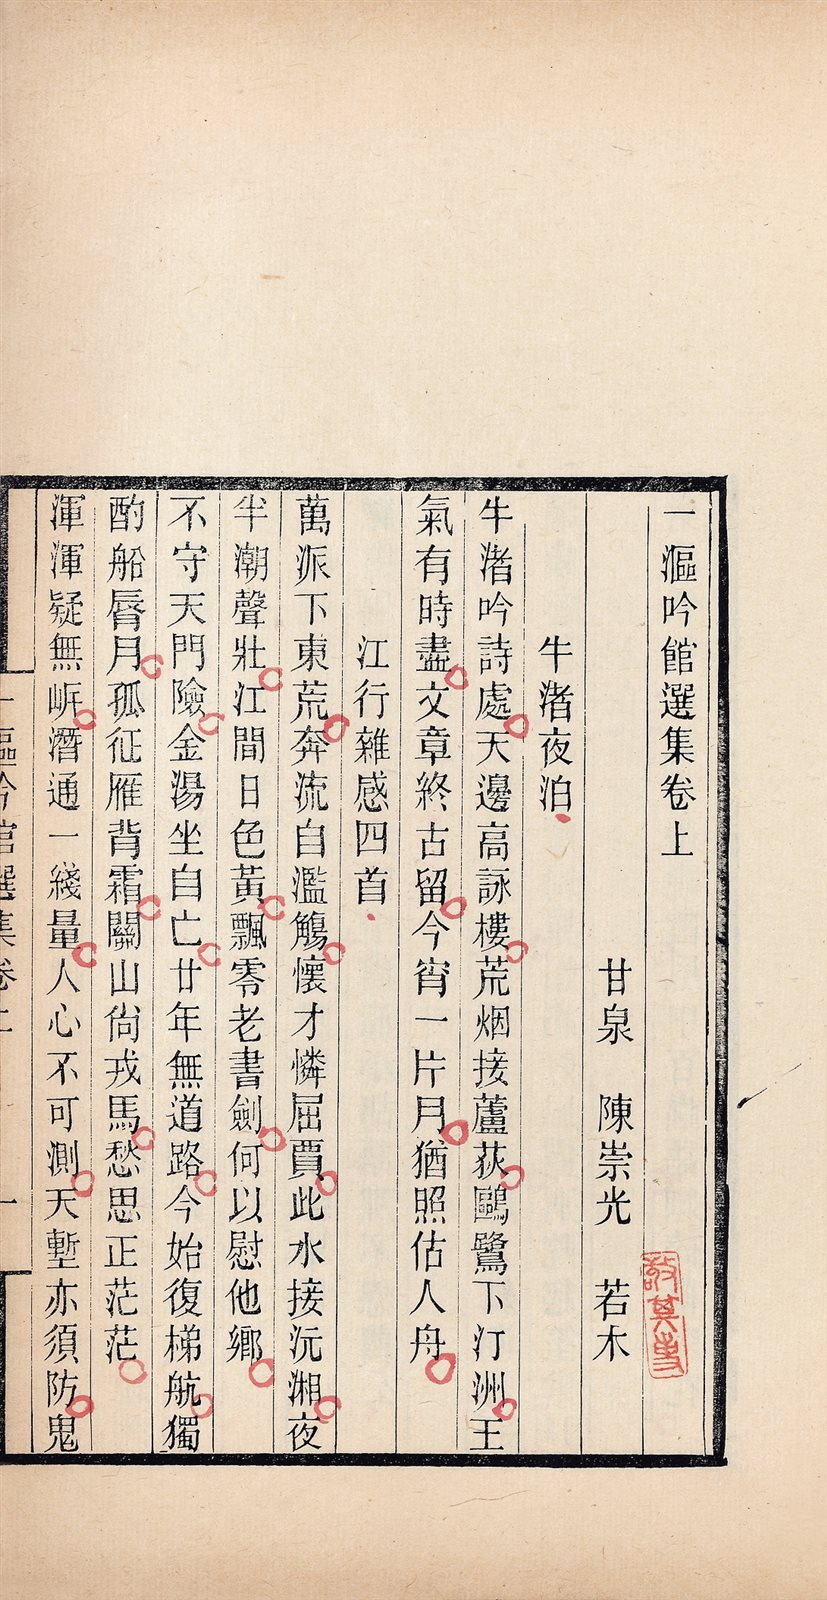 一漚吟館選集卷上
甘泉　陳崇光　若木
牛渚夜泊
牛渚吟詩處天邊高詠樓荒烟接蘆荻鷗鷺下汀洲王
氣有時盡文章終古留今宵一片月猶照估人舟
江行雜感四首
萬派下東荒奔流自濫觴懷才憐屈賈此水接沅湘夜
半潮聲壯江間日色黃飄零老書劍何以慰他鄉
不守天門險金湯坐自亡廿年無道路今始復梯航獨
酌船脣月孤征雁背霜關山尙戎馬愁思正茫茫
渾渾疑無岸潛通一綫量人心不可測天塹亦須防鬼